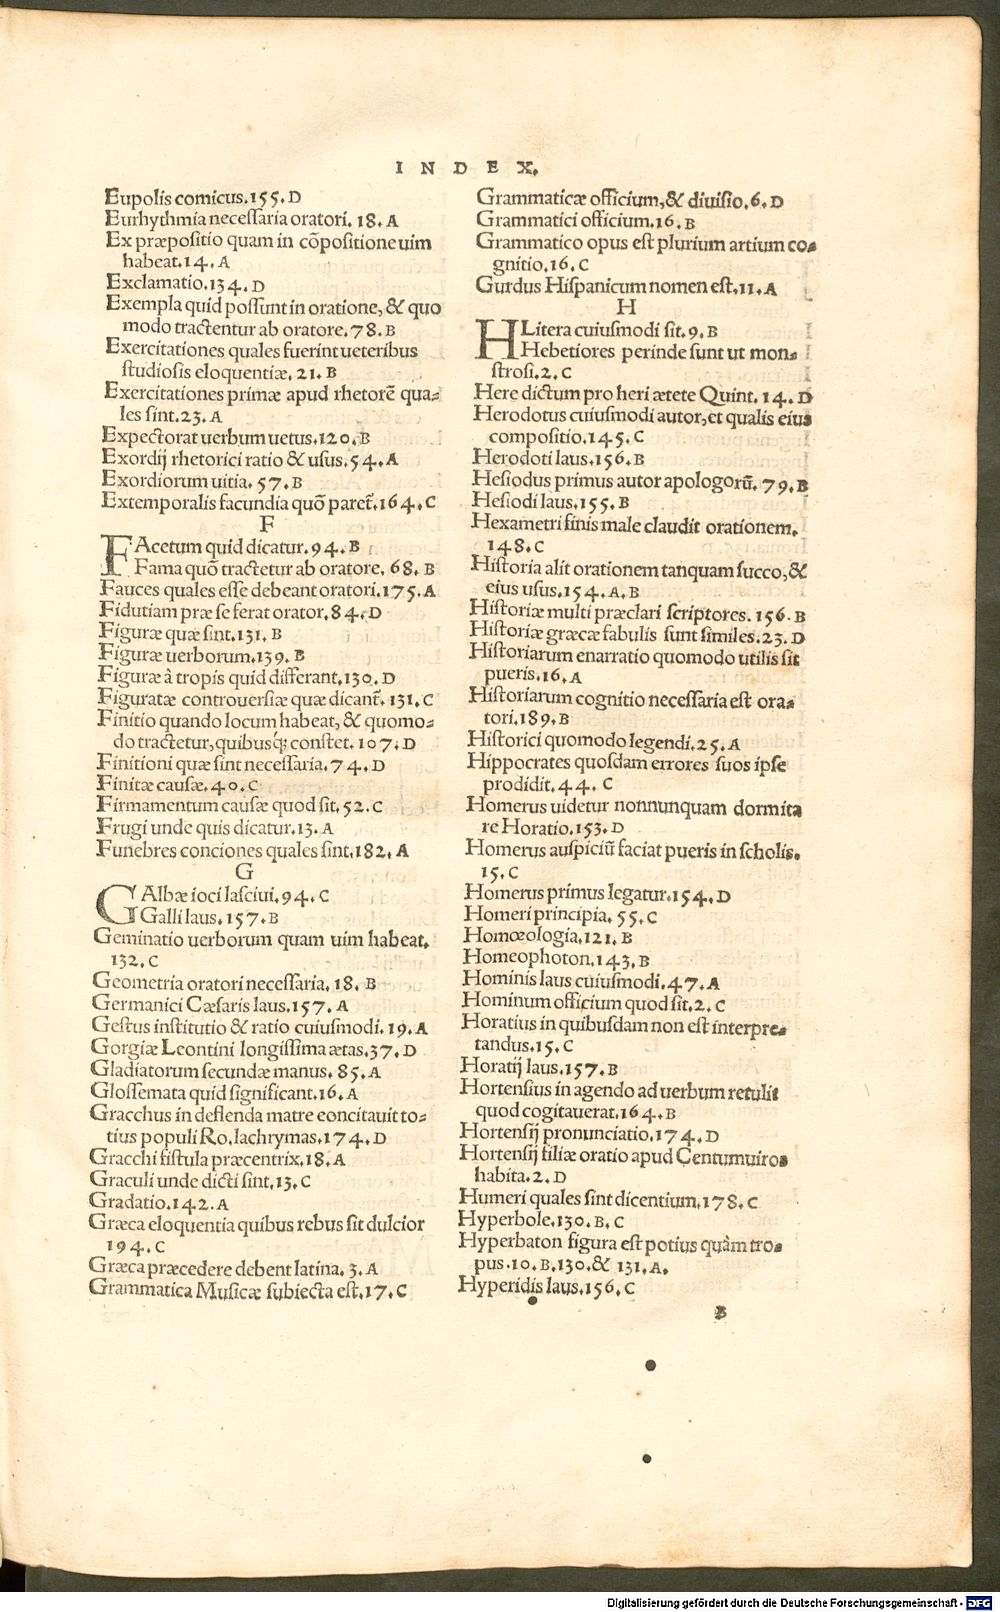 INDEX.
Eupolis comicus.155.D
Eurhythmia necessaria oratori. 18.A
Ex præpositio quam in cõpositione uim
habeat.14.A
Exclamatio.134.D
Exempla quid possunt in oratione, & quo
modo tractentur ab oratore.78.B
Exercitationes quales fuerint ueteribus
studiosis eloquentiæ. 21.B
Exercitationes primæ apud rhetorẽ qua=
les sint.23.A
Expectorat uerbum uetus.120.B
Exordij rhetorici ratio & usus.54.A
Exordiorum uitia. 57.B
Extemporalis facundia quõ paret̃.164.C
F
FAcetum quid dicatur.94.B
Fama quõ tractetur ab oratore. 68.B
Fauces quales esse debeant oratori.175.A
Fidutiam præ se ferat orator.84.D
Figuræ quæ sint.131.B
Figuræ uerborum.139.B
Figuræ â tropis quid differant.130.D
Figuratæ controuersiæ quæ dicant̃.131.C
Finitio quando locum habeat, & quomo=
do tractetur, quibusq; constet.107.D
Finitioni quæ sint necessaria.74.D
Finitæ causæ.40.C
Firmamentum causæ quod sit.52.C
Frugi unde quis dicatur.13.A
Funebres conciones quales sint.182.A
G
GAlbæ ioci lasciui.94.C
Galli laus.157.B
Geminatio uerborum quam uim habeat.
132.C
Geometria oratori necessaria. 18.B
Germanici Cæsaris laus.157.A
Gestus institutio & ratio cuiusmodi.19.A
Gorgiæ Leontini longissima ætas.37.D
Gladiatorum secundæ manus. 85.A
Glossemata quid significant.16.A
Gracchus in deflenda matre concitauit to=
tius populi Ro. lachrymas.174.D
Gracchi fistula præcentrix.18.A
Graculi unde dicti sint.13.C
Gradatio.142.A
Græca eloquentia quibus rebus sit dulcior
194.C
Græca præcedere debent latina. 3.A
Grammatica Musicæ subiecta est.17.C
Grammaticæ officium, & diuisio.6.D
Grammatici officium.16.B
Grammatico opus est plurium artium co=
gnitio.16.C
Gurdus Hispanicum nomen est.11.A
H
HLitera cuiusmodi sit.9.B
Hebetiores perinde sunt ut mon=
strosi.2.C
Here dictum pro heri ætete Quint. 14.D
Herodotus cuiusmodi autor, et qualis eius
compositio.145.C
Herodoti laus.156.B
Hesiodus primus autor apologorũ.79.B
Hesiodi laus.155.B
Hexametri finis male claudit orationem.
148.C
Historia alit orationem tanquam succo, &
eius usus.154.A.B
Historiæ multi præclari scriptores. 156.B
Historiæ græcæ fabulis sunt similes.23.D
Historiarum enarratio quomodo utilis sit
pueris.16.A
Historiarum cognitio necessaria est ora=
tori.189.B
Historici quomodo legendi.25.A
Hippocrates quosdam errores suos ipse
prodidit.44.C
Homerus uidetur nonnunquam dormita
re Horatio.153.D
Homerus auspiciũ faciat pueris in scholis.
15.C
Homerus primus legatur.154.D
Homeri principia. 55.C
Homœologia.121.B
Homeophoton.143.B
Hominis laus cuiusmodi.47.A
Hominum officium quod sit.2.C
Horatius in quibusdam non est interpre=
tandus.15.C
Horatij laus.157.B
Hortensius in agendo ad uerbum retulit
quod cogitauerat.164.B
Hortensij pronunciatio.174.D
Hortensij filiæ oratio apud Centumuiros
habita.2.D
Humeri quales sint dicentium.178.C
Hyperbole.130.B.C
Hyperbaton figura est potius quàm tro=
pus.10.B.130.& 131.A.
Hyperidis laus.156.C
B
Digitalisierung gefördert durch die Deutsche Forschungsgemeinschaft - DFG